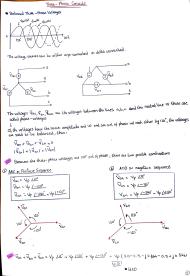 Three-Phase Circuits
Balanced Three-Phase Voltages
The voltage sources can be either wye-connected or delta-connected.
The voltages Van, Vbn, Vcn are the voltages between the lines a, b, c and the neutral line n. These are called phase-voltages
If the voltages have the same amplitude and are out of phase with each other by 120°, the voltages are said to be balanced, thus:
Van + Vbn + Vcn = 0
|Van| = |Vbn| = |Vcn|
Because the three-phase voltages are 120° out of phase, there are two possible combinations
abc or Positive Sequence
Van = Vp ∠0°
Vbn = Vp ∠-120°
Vcn = Vp ∠-240° = Vp ∠+120°
acb or negative sequence
Van = Vp ∠0°
Vcn = Vp ∠-120°
Vbn = Vp ∠-240° = Vp ∠+120°
120°
120°
Van + Vbn + Vcn = Vp ∠0° + Vp ∠-120° + Vp ∠+120° = Vp (1.0 - 0.5 - j 0.866 - 0.5 + j 0.866)
= 0